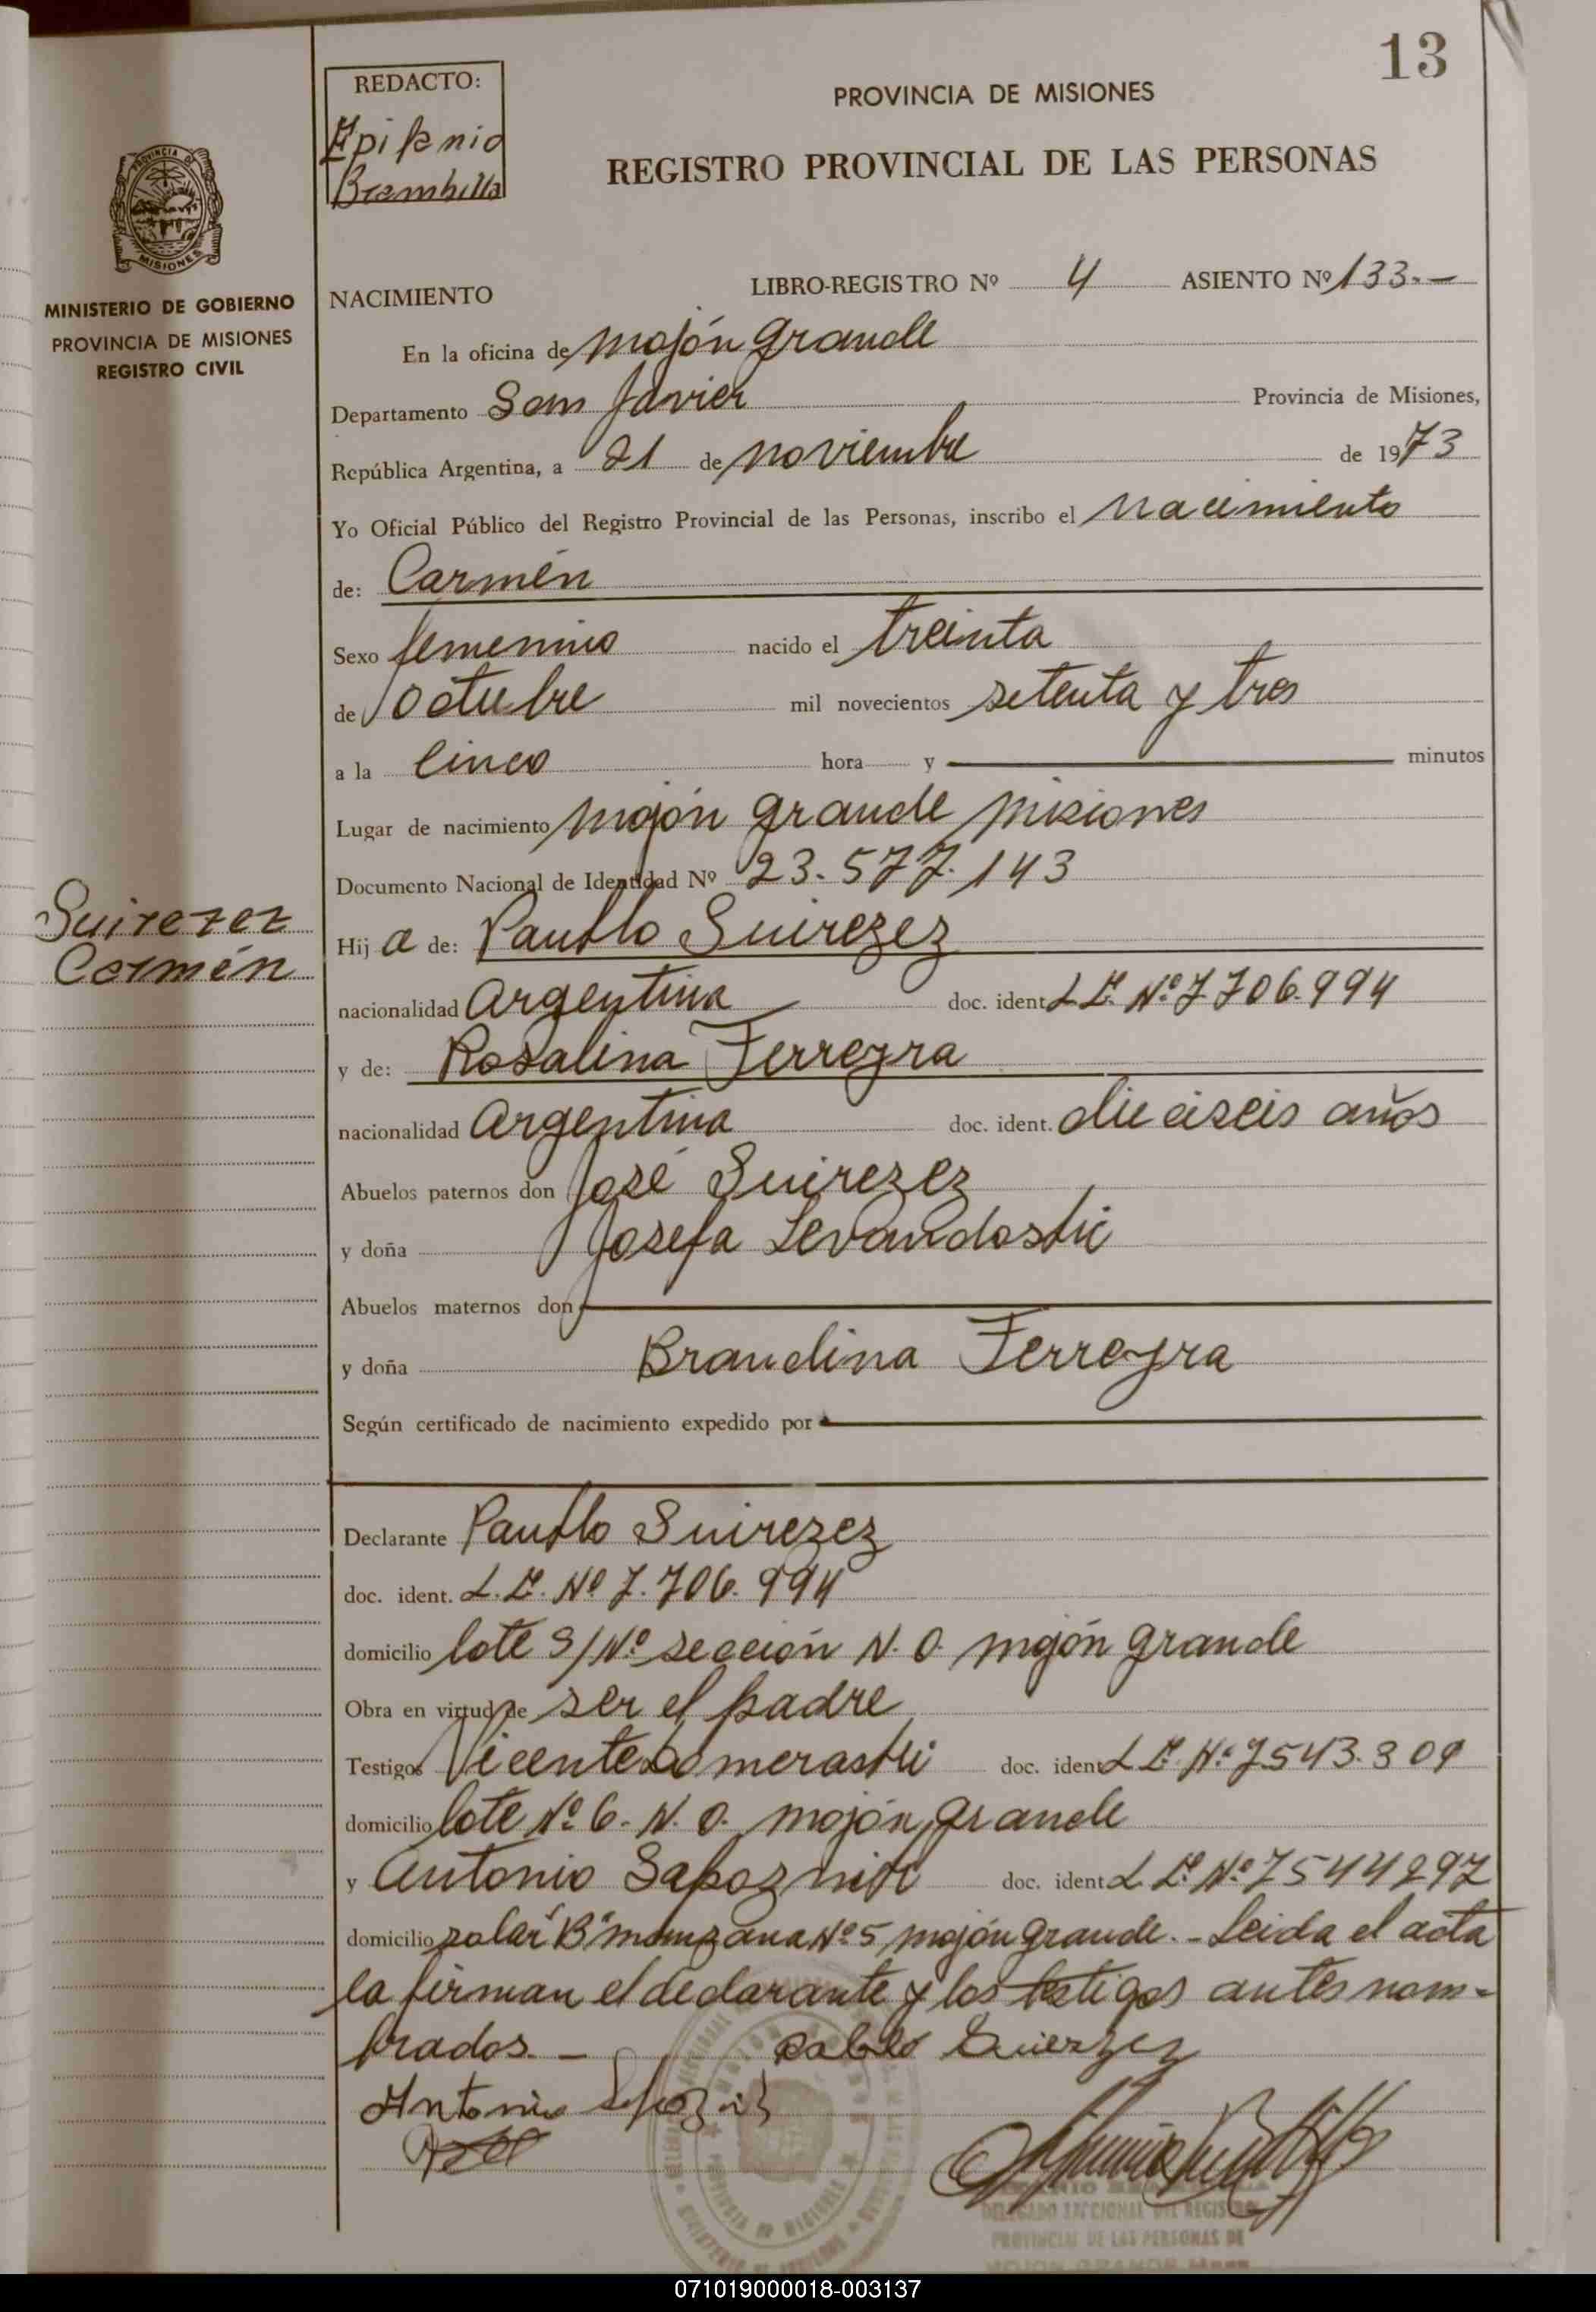 13
REDACTO:
Epifanio
Brambilla
PROVINCIA DE MISIONES
REGISTRO PROVINCIAL DE LAS PERSONAS
PROVINCIA DE
MISIONES
MINISTERIO DE GOBIERNO
PROVINCIA DE MISIONES
REGISTRO CIVIL
NACIMIENTO LIBRO-REGISTRO Nº 4 ASIENTO Nº 133.-
En la oficina de mojón grande
Departamento San Javier Provincia de Misiones,
República Argentina, a 21 de noviembre de 1973
Yo Oficial Público del Registro Provincial de las Personas, inscribo el nacimiento
de: Carmén
Sexo femenino nacido el treinta
de octubre mil novecientos setenta y tres
a la cinco hora y minutos
Lugar de nacimiento mojón grande misiones
Documento Nacional de Identidad Nº 23.577.143
Suirezez
Carmén
Hij a de: Paublo Suirezez
nacionalidad argentina doc. ident. L E. Nº 7.706.994
y de: Rosalina Ferreyra
nacionalidad argentina doc. ident. dieciseis años
Abuelos paternos don José Suirezez
y doña Josefa Levandoski
Abuelos maternos don
y doña Brandina Ferreyra
Según certificado de nacimiento expedido por
Declarante Paublo Suirezez
doc. ident. L. E. Nº 7.706.994
domicilio lote S/Nº sección N. O. mojón grande
Obra en virtud de ser el padre
Testigos Vicente Lomeraski doc. ident. L E. Nº 7543.309
domicilio lote Nº 6- N. O. mojón grande
y Antonio Sapoznik doc. ident. L E. Nº 7544297
domicilio solar "B" manzana Nº 5 mojón grande.- Leida el acta
la firman el declarante y los testigos antes nom-
brados.-
Antonio
DELEGADO SECCIONAL DEL REGISTRO
PROVINCIAL DE LAS PERSONAS DE
MOJON GRANDE
071019000018-003137